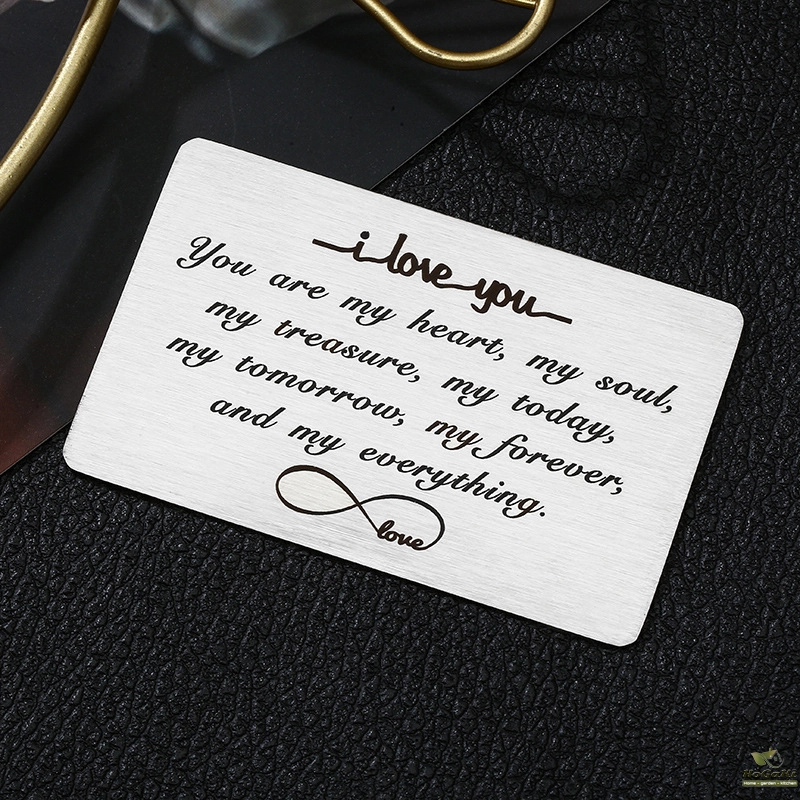 i love you
You are my heart, my soul,
my treasure, my today,
my tomorrow, my forever,
and my everything.
love
Home - garden - kitchen